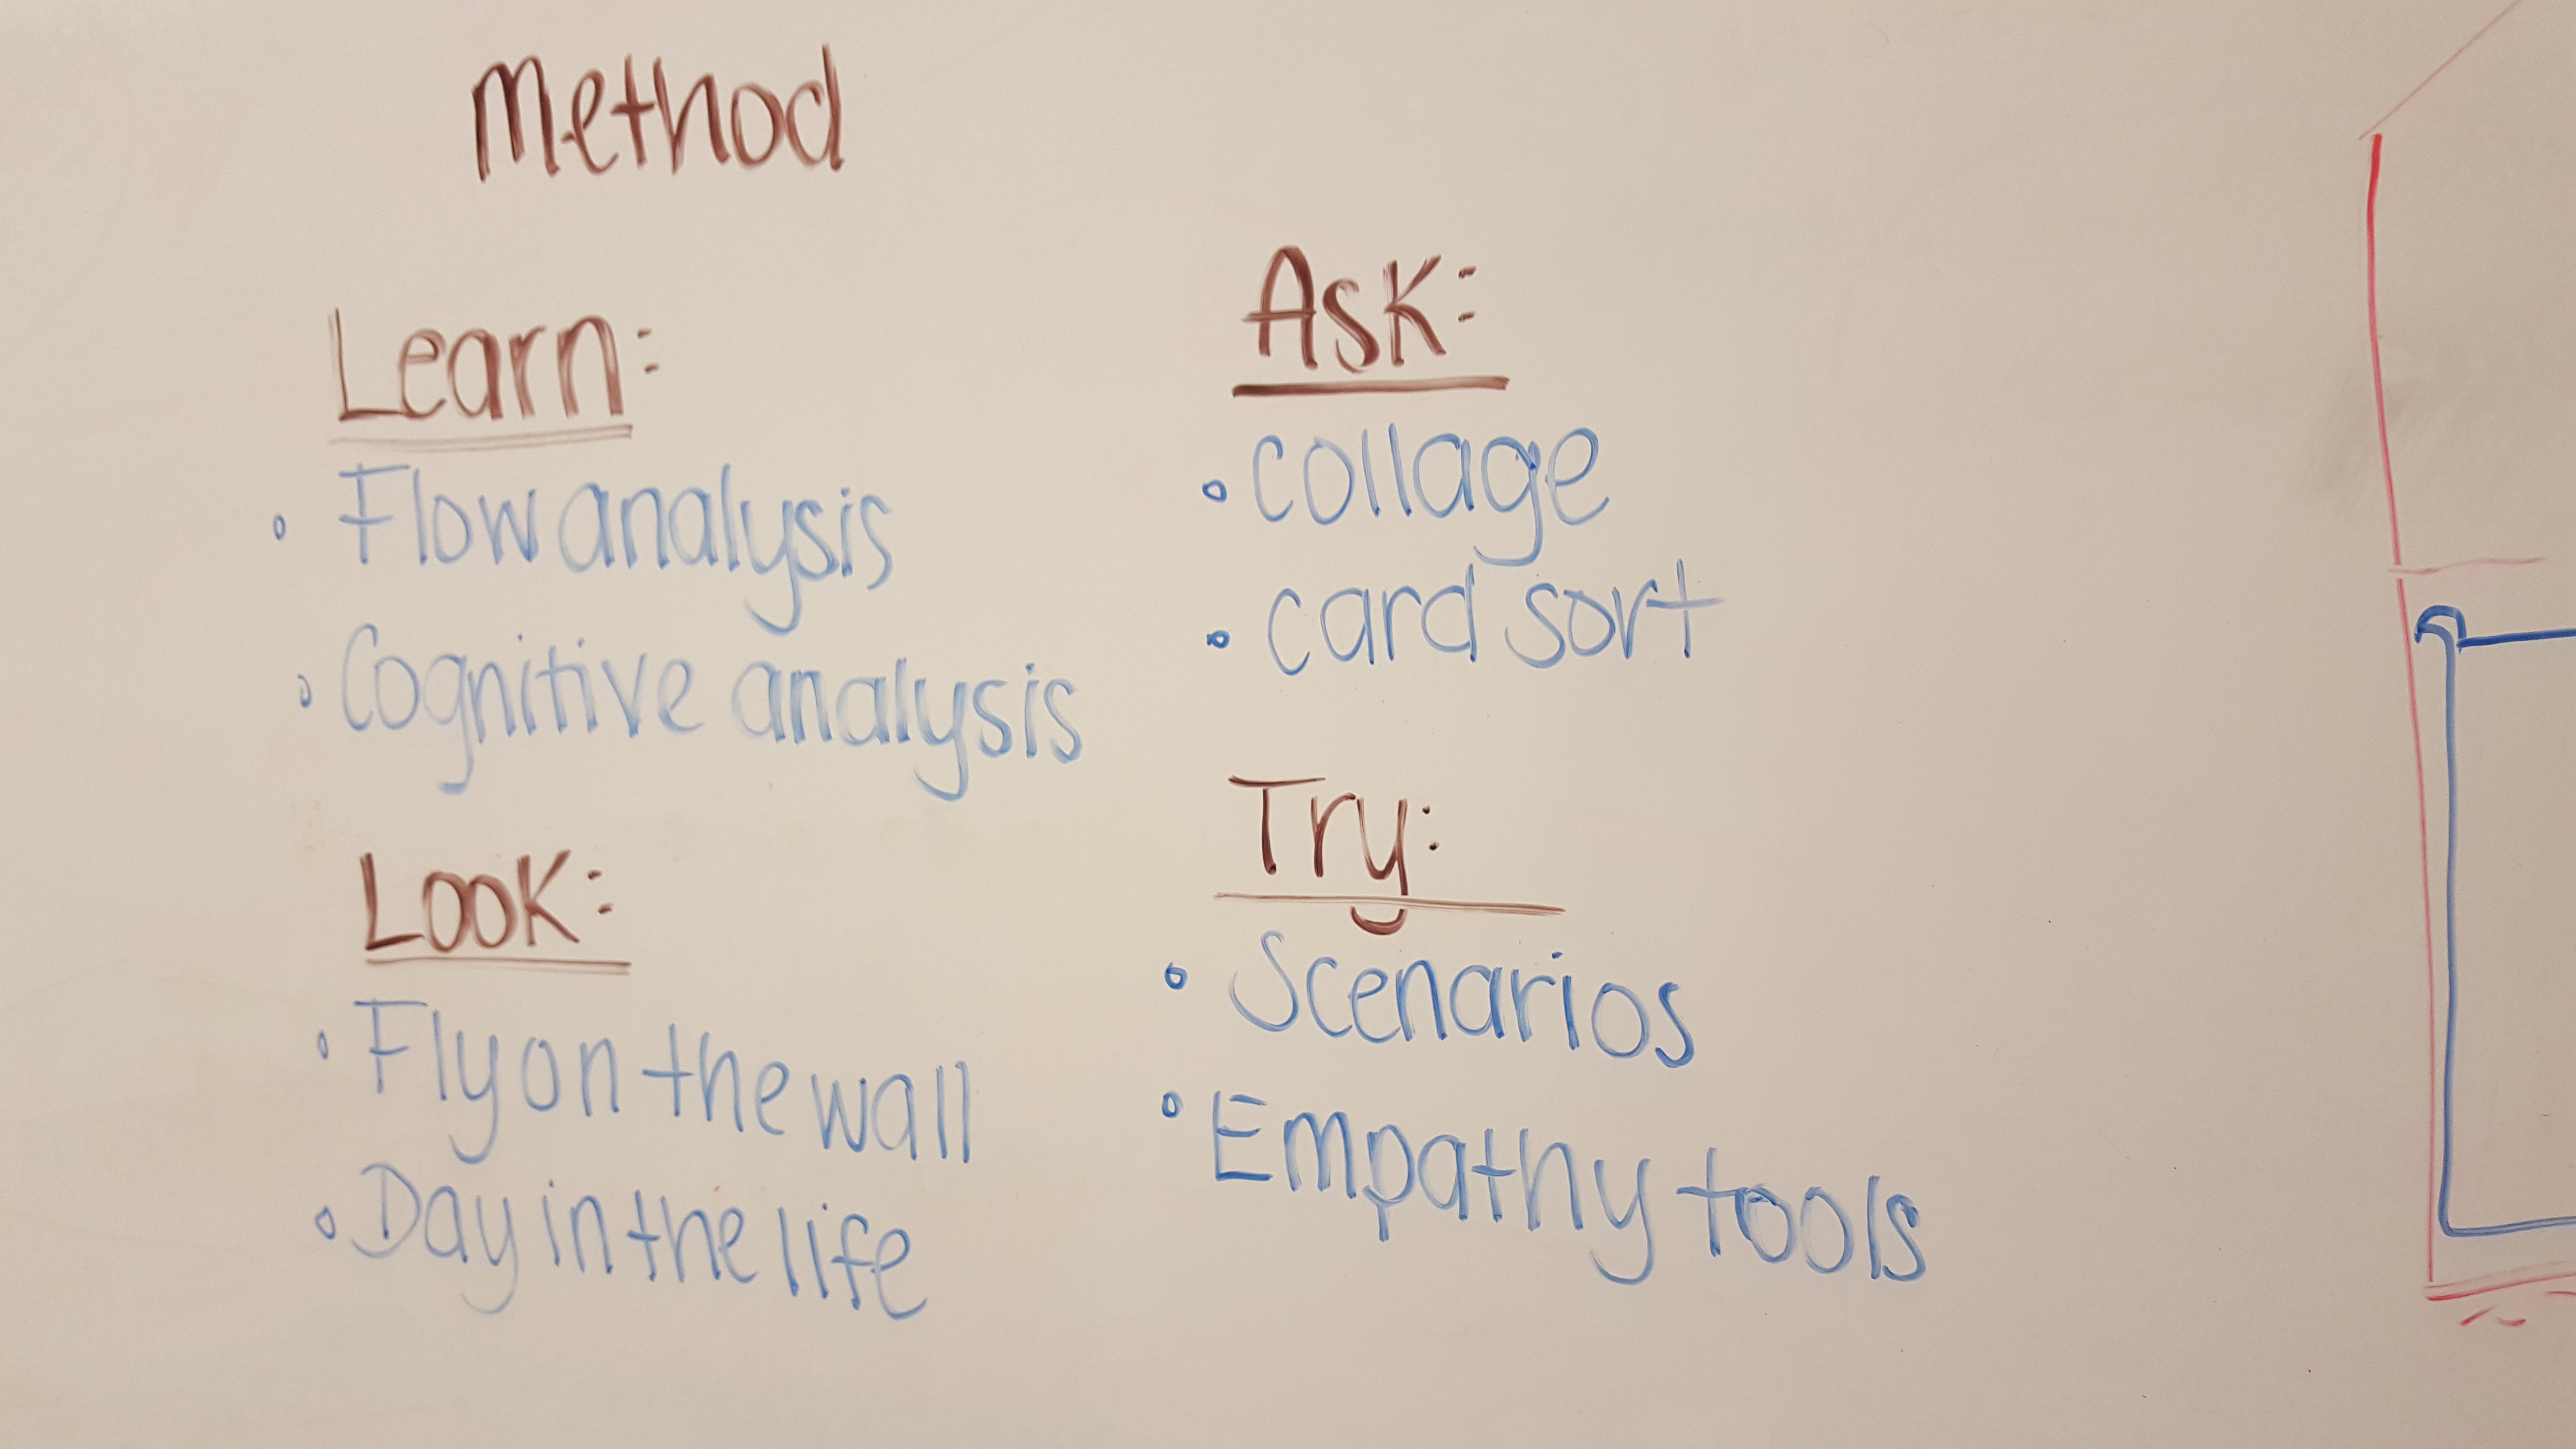 Method
Learn:
• Flow analysis
• Cognitive analysis
Look:
• Fly on the wall
• Day in the life
Ask:
• collage
• card sort
Try:
• Scenarios
• Empathy tools